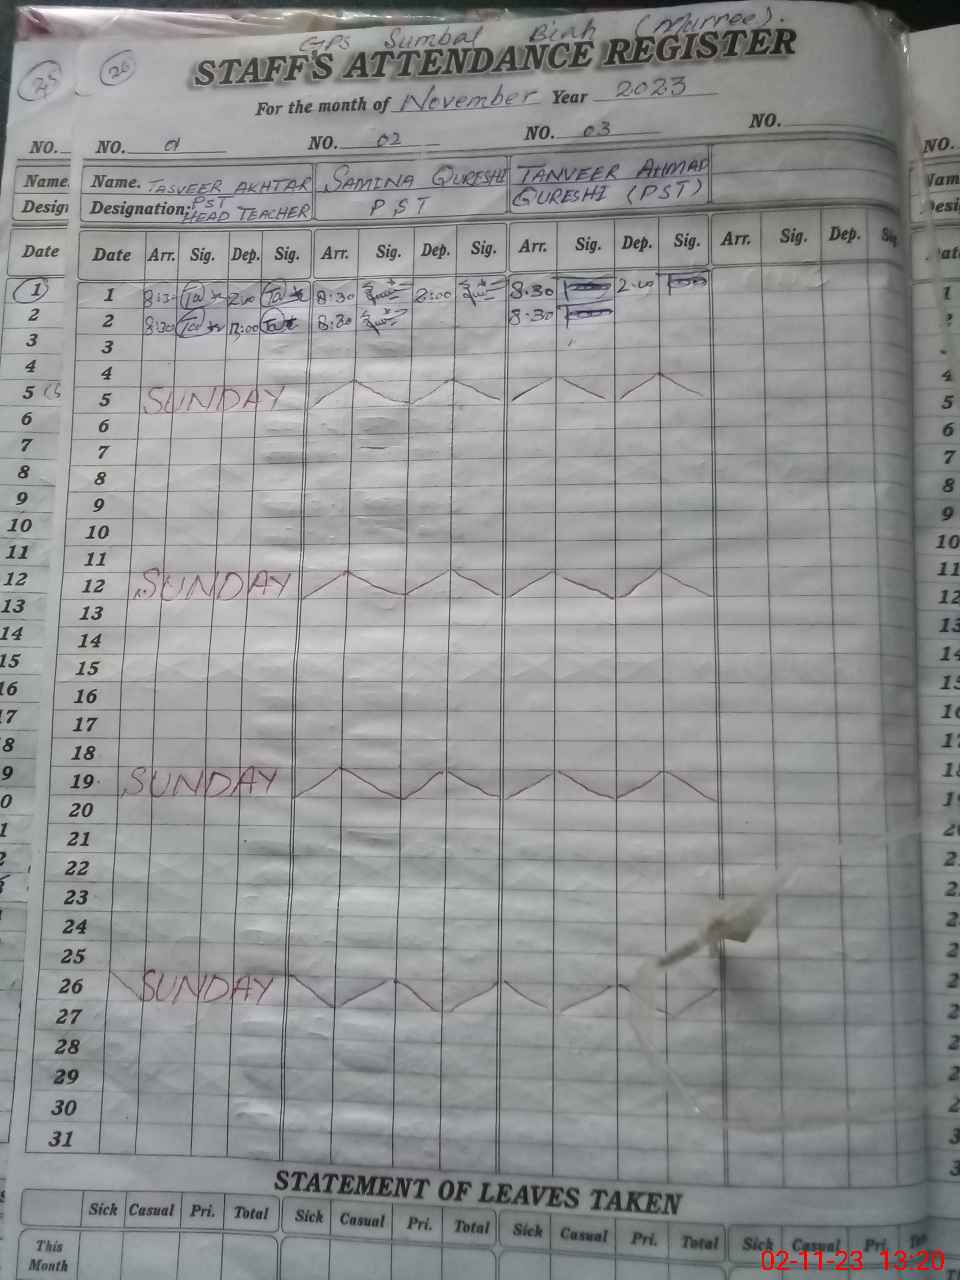 GPS Sumbal Biah (Murree).
26
STAFF'S ATTENDANCE REGISTER
For the month of November Year 2023
NO. 01 NO. 02 NO. 03 NO.
Name. TASVEER AKHTAR SAMINA QURESHI TANVEER AHMAD
Designation: PST HEAD TEACHER PST QURESHI (PST)
Date Arr. Sig. Dep. Sig. Arr. Sig. Dep. Sig. Arr. Sig. Dep. Sig. Arr. Sig. Dep. Sig.
1 8:30 2:00 8:30 2:00 8.30 2.00
2 8:30 8:30 8.30
3
4
5 SUNDAY
6
7
8
9
10
11
12 SUNDAY
13
14
15
16
17
18
19 SUNDAY
20
21
22
23
24
25
26 SUNDAY
27
28
29
30
31
STATEMENT OF LEAVES TAKEN
Sick Casual Pri. Total Sick Casual Pri. Total Sick Casual Pri. Total Sick Casual Pri.
This
Month
02-11-23 13:20